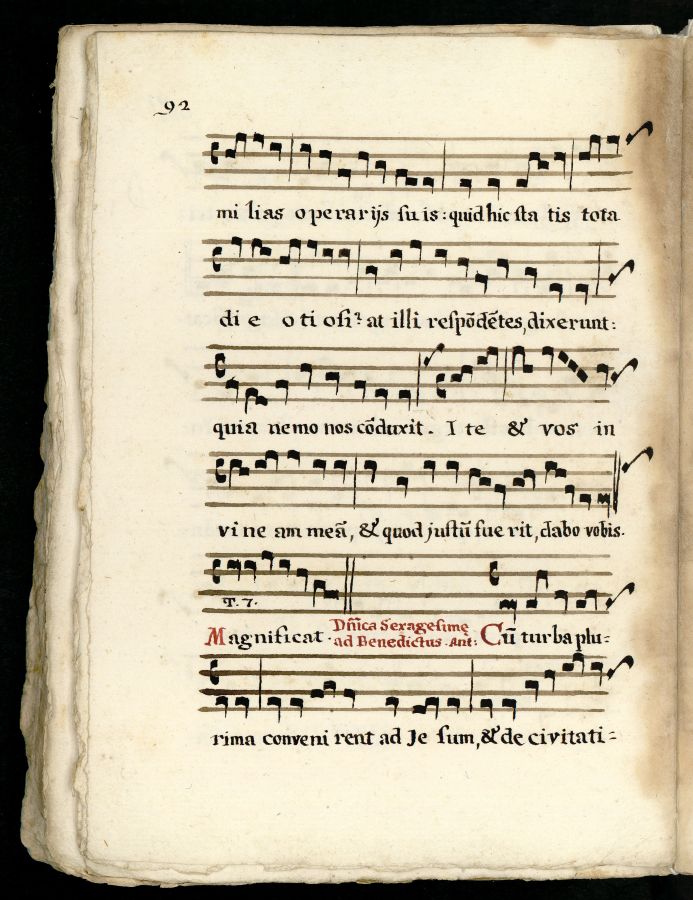 92
mi lias operarijs suis: quid hic sta tis tota
di e o ti osi? at illi respōdētes, dixerunt:
quia nemo nos cōduxit. I te & vos in
vi ne am meā, & quod justū fue rit, dabo vobis.
T. 7.
Magnificat. Dn̄ica Sexagesimę
ad Benedictus. Ant: Cū turba plu=
rima conveni rent ad Je sum, & de civitati=